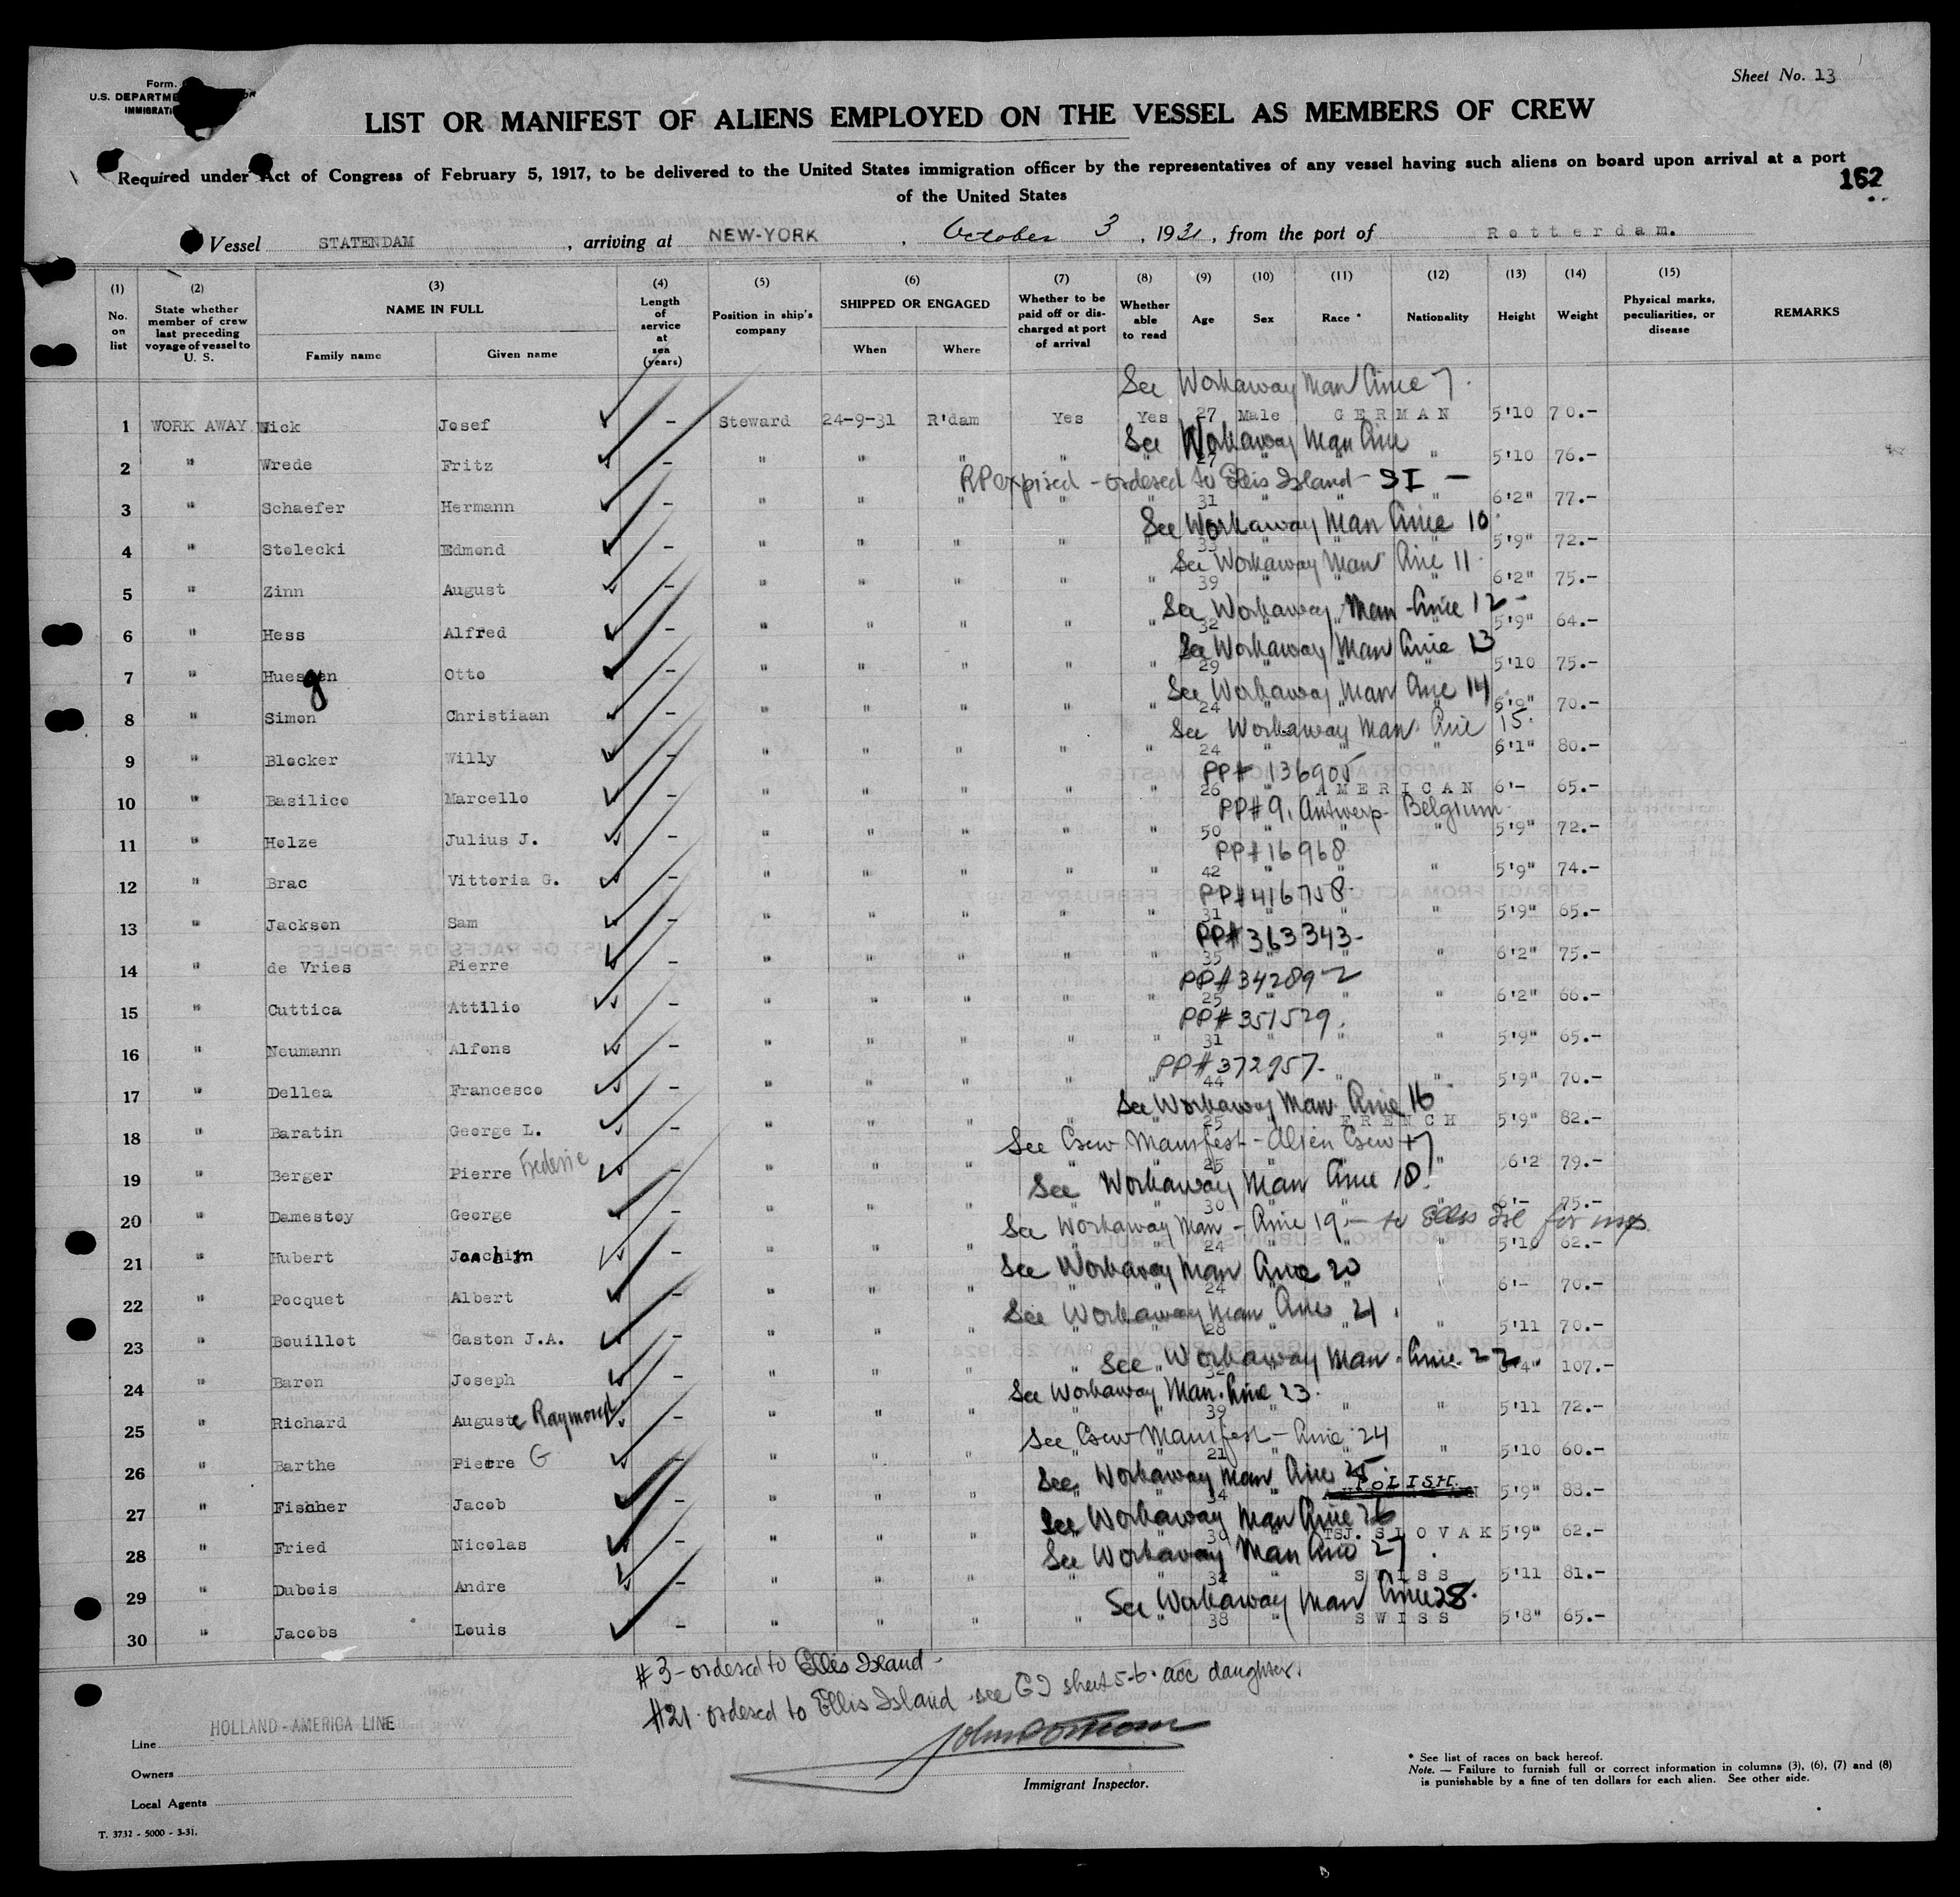 Sheet No. 13
Form.
U.S. DEPARTME
IMMIGRATI
LIST OR MANIFEST OF ALIENS EMPLOYED ON THE VESSEL AS MEMBERS OF CREW
Required under Act of Congress of February 5, 1917, to be delivered to the United States immigration officer by the representatives of any vessel having such aliens on board upon arrival at a port
of the United States
162
Vessel STATENDAM , arriving at NEW-YORK , October 3 , 1931, from the port of Rotterdam.
(1) No. on list
(2) State whether member of crew last preceding voyage of vessel to U. S.
(3) NAME IN FULL Family name Given name
(4) Length of service at sea (years)
(5) Position in ship's company
(6) SHIPPED OR ENGAGED When Where
(7) Whether to be paid off or discharged at port of arrival
(8) Whether able to read
(9) Age
(10) Sex
(11) Race *
(12) Nationality
(13) Height
(14) Weight
(15) Physical marks, peculiarities, or disease
REMARKS
See Workaway Man Line 7.
1 WORK AWAY Wick Josef - Steward 24-9-31 R'dam Yes Yes 27 Male GERMAN 5'10 70.-
See Workaway Man Line
2 " Wrede Fritz - " " " " " 27 " " " 5'10 76.-
RP expired - ordered to Ellis Island - SI -
3 " Schaefer Hermann - " " " " " 31 " " " 6'2" 77.-
See Workaway Man Line 10
4 " Stelecki Edmond - " " " " " 33 " " " 5'9" 72.-
See Workaway Man Line 11
5 " Zinn August - " " " " " 39 " " " 6'2" 75.-
See Workaway Man Line 12 -
6 " Hess Alfred - " " " " " 32 " " " 5'9" 64.-
See Workaway Man Line 13
7 " Huesgen Otto - " " " " " 29 " " " 5'10 75.-
See Workaway Man Line 14
8 " Simon Christiaan - " " " " " 24 " " " 70.-
See Workaway Man Line 15.
9 " Blocker Willy - " " " " " 24 " " " 6'1" 80.-
PP# 136905
10 " Basilico Marcello - " " " " " 26 " AMERICAN 6'- 65.-
PP# 9. Antwerp - Belgium
11 " Holze Julius J. - " " " " " 50 " " " 5'9" 72.-
PP# 16968
12 " Brac Vittoria G. - " " " " " 42 " " " 5'9" 74.-
PP# 416758.
13 " Jackson Sam - " " " " " 31 " " " 5'9" 65.-
PP# 363343-
14 " de Vries Pierre - " " " " " 35 " " " 6'2" 75.-
PP# 342892
15 " Cuttica Attilio - " " " " " 25 " " " 6'2" 66.-
PP# 351529.
16 " Neumann Alfons - " " " " " 31 " " " 5'9" 65.-
PP# 372957-
17 " Dellea Francesco - " " " " " 44 " " " 5'9" 70.-
See Workaway Man Line 16
18 " Baratin George L. - " " " " " 25 " FRENCH 5'9" 82.-
See Crew Manifest - Alien Crew
19 " Berger Pierre Frederic - " " " " " 25 " " " 6'2 79.-
See Workaway Man Line 18
20 " Damestoy George - " " " " " 30 " " " 6'- 75.-
See Workaway Man - Line 19 - to Ellis Isl for insp.
21 " Hubert Joachim - " " " " " 24 " " " 5'10 62.-
See Workaway Man Line 20
22 " Pocquet Albert - " " " " " 24 " " " 6'- 70.-
See Workaway Man Line 21.
23 " Bouillot Gaston J.A. - " " " " " 28 " " " 5'11 70.-
See Workaway Man. Line 22
24 " Baron Joseph - " " " " " 32 " " " 107.-
See Workaway Man. Line 23.
25 " Richard Auguste Raymond - " " " " " 39 " " " 5'11 72.-
See Crew Manifest - Line 24
26 " Barthe Pierre G - " " " " " 21 " " " 5'10 60.-
See Workaway Man Line 25.
27 " Fischer Jacob - " " " " " 34 " POLISH. 5'9" 83.-
See Workaway Man Line 26
28 " Fried Nicolas - " " " " " 30 " TSJ. SLOVAK 5'9" 62.-
See Workaway Man Line 27.
29 " Dubois Andre - " " " " " 32 " SWISS 5'11 81.-
See Workaway Man Line 28.
30 " Jacobs Louis - " " " " " 38 " SWISS 5'8" 65.-
#3 - ordered to Ellis Island -
#21. ordered to Ellis Island - see sheet 5-6. acc daughter.
Line HOLLAND-AMERICA LINE
Owners
Local Agents
Immigrant Inspector.
* See list of races on back hereof.
Note. — Failure to furnish full or correct information in columns (3), (6), (7) and (8)
is punishable by a fine of ten dollars for each alien. See other side.
T. 3732 - 5000 - 3-31.